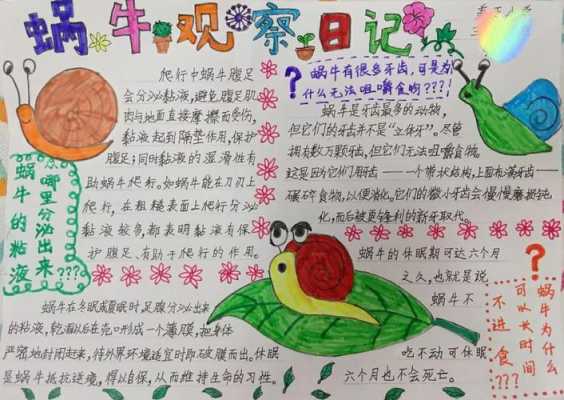 蜗牛观察日记
爬行中蜗牛腹足
会分泌黏液,避免腹足肌
肉与地面直接摩擦而受伤,
黏液起到隔垫作用,保护
腹足;同时黏液的湿滑性有
助蜗牛爬行。如蜗牛能在刀刃上
爬行,在粗糙表面上爬行分泌
黏液较多,都表明黏液有保
护腹足、有助于爬行的作用。
蜗牛的黏液
从哪里分泌出来???
蜗牛在冬眠或夏眠时,足腺分泌出来
的粘液,乾涸以后在壳口形成一个薄膜,把身体
严密地封闭起来,待外界环境适宜时取破膜而出。休眠
是蜗牛抵抗逆境,得以自保,从而维持生命的习性。
?
蜗牛有很多牙齿,可是为
什么无法咀嚼食物????!
蜗牛是牙齿最多的动物,
但它们的牙齿并不是“立体牙”。尽管
拥有数万颗牙齿,但它们无法咀嚼食物。
这是因为它们用齿舌——一个带状结构,上面布满牙齿——
碾碎食物,以便消化。它们的微小牙齿会慢慢磨损钝
化,而后被更锋利的新牙取代。
蜗牛的休眠期可达六个月
之久,也就是说,
蜗牛不
吃不动可休眠
六个月也不会死亡。
?
蜗牛为什么
可以长时间
不进食???